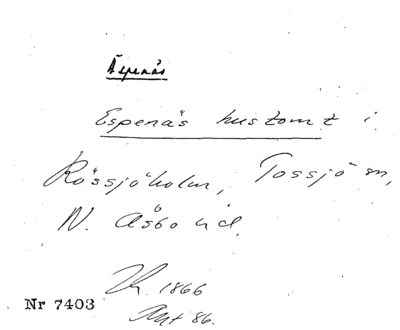 Äspenäs
Espenäs hustomt i
Rössjöholm, Tossjö sn,
N. Åsbo hd.
1866
Ant 86.
Nr 7403